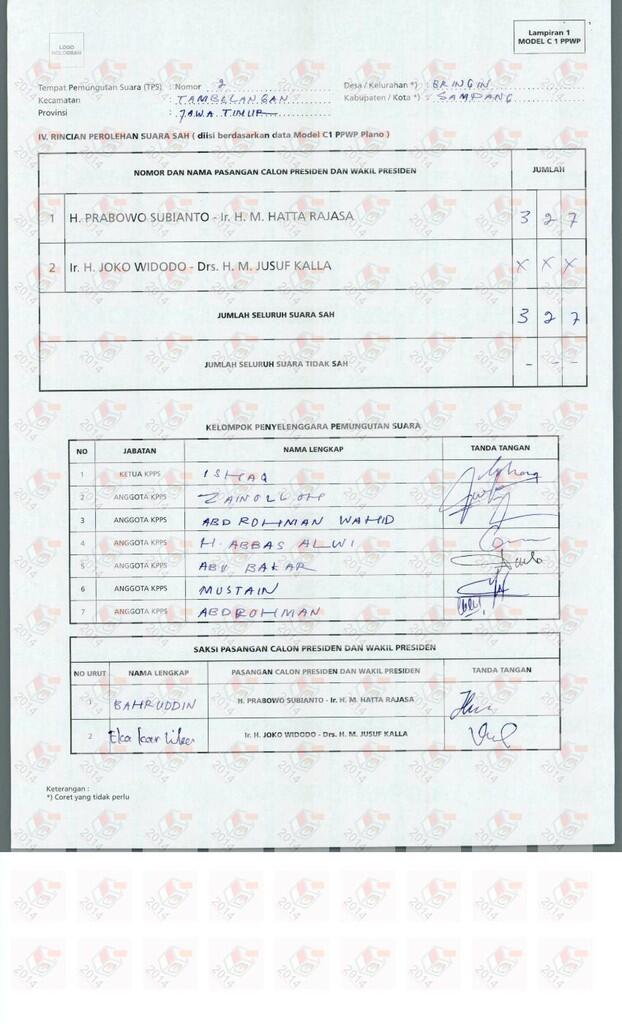 LOGO
HOLOGRAM
Lampiran 1
MODEL C 1 PPWP
Tempat Pemungutan Suara (TPS) : Nomor 2 Desa / Kelurahan *) : BRINGIN
Kecamatan : TAMBELANGAN Kabupaten / Kota *) : SAMPANG
Provinsi : JAWA TIMUR
IV. RINCIAN PEROLEHAN SUARA SAH ( diisi berdasarkan data Model C1 PPWP Plano )
NOMOR DAN NAMA PASANGAN CALON PRESIDEN DAN WAKIL PRESIDEN JUMLAH
1 H. PRABOWO SUBIANTO - Ir. H. M. HATTA RAJASA 3 2 7
2 Ir. H. JOKO WIDODO - Drs. H. M. JUSUF KALLA X X X
JUMLAH SELURUH SUARA SAH 3 2 7
JUMLAH SELURUH SUARA TIDAK SAH - - -
KELOMPOK PENYELENGGARA PEMUNGUTAN SUARA
NO JABATAN NAMA LENGKAP TANDA TANGAN
1 KETUA KPPS ISHAQ
2 ANGGOTA KPPS ZAINOLLOH
3 ANGGOTA KPPS ABD ROHMAN WAHID
4 ANGGOTA KPPS H. ABBAS ALWI
5 ANGGOTA KPPS ABU BAKAR
6 ANGGOTA KPPS MUSTAIN
7 ANGGOTA KPPS ABDROHMAN
SAKSI PASANGAN CALON PRESIDEN DAN WAKIL PRESIDEN
NO URUT NAMA LENGKAP PASANGAN CALON PRESIDEN DAN WAKIL PRESIDEN TANDA TANGAN
1 BAHRUDDIN H. PRABOWO SUBIANTO - Ir. H. M. HATTA RAJASA
2 Eka Ir. H. JOKO WIDODO - Drs. H. M. JUSUF KALLA
Keterangan :
*) Coret yang tidak perlu